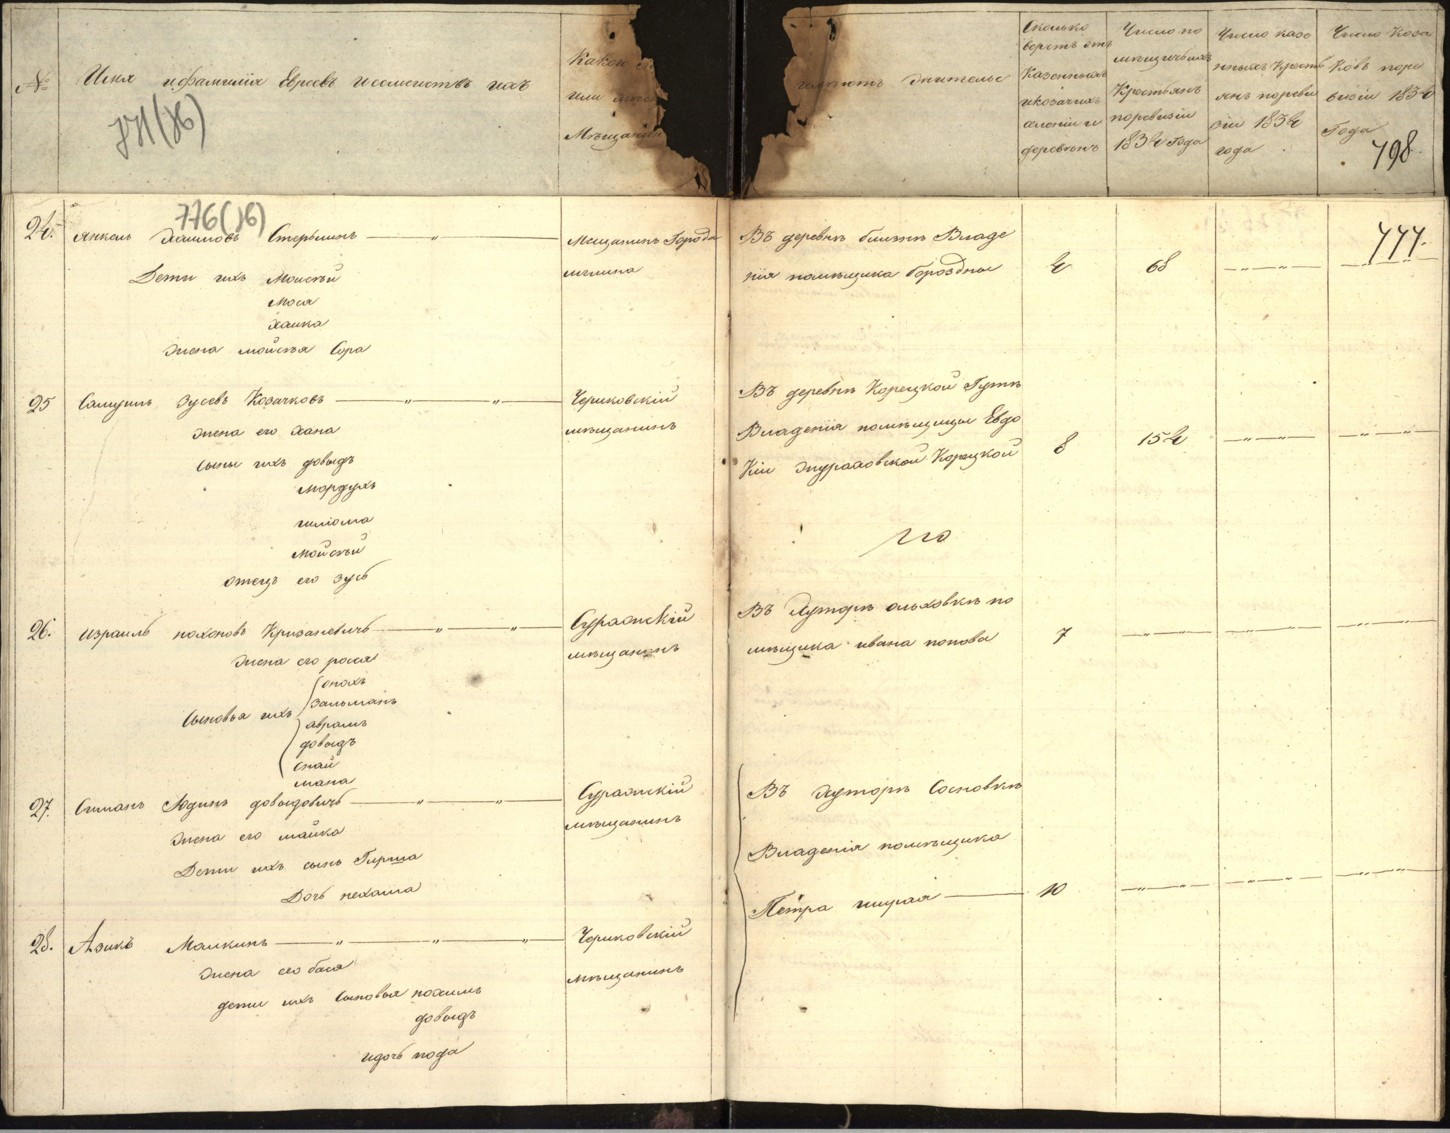 №
Имя и фамилія Евреевъ и семействъ ихъ
771(об)
Какой
или
Мѣщанин
имѣютъ жительс
Сколько
верстъ отъ
Казенныхъ
и козачихъ
селеній и
деревень
Число по
мѣщичьихъ
Крестьянъ
поревизіи
1834 Года
Число казе
нныхъ Кресть
янъ пореви
зіи 1834
года
Число Коза
ковъ поре
визіи 1834
Года
798
776(об)
777.
24. Янкель Хаимовъ Стерлинъ
Дети ихъ Моисѣй
Мося
Хаика
жена мойсѣя Сора
Мещанинъ Города
мглина
Въ деревнѣ близнѣ Владе
нія помѣщика бороздны
4
68
25 Самуилъ Зусевъ Козачковъ
жена его Хана
сыны ихъ довыдъ
Мордухъ
шліома
Мойсѣй
отецъ его Зусь
Чериковскій
мѣщанинъ
Въ деревнѣ Корецкой Гутѣ
Владенія помѣщицы Евдо
Кіи журавовской Корецкой
8
154
26. Израиль нохоновъ Кризаневичъ
жена его рося
Сыновья ихъ
енохъ
Зальманъ
аврамъ
довыдъ
Суражскій
мѣщанинъ
Въ Хуторѣ ольховкѣ по
мѣщика ивана попова
7
27. Симанъ Юдинъ довыдовичъ
жена его майка
Дети ихъ сынъ Гирша
Дочь нехама
Суражскій
мѣщанинъ
Въ Хуторѣ Сосновкѣ
Владенія помѣщика
Петра ширая
10
28. Азикъ Малкинъ
жена его бася
дети ихъ Сыновья нохимъ
довыдъ
идочь
Чериковскій
мѣщанинъ